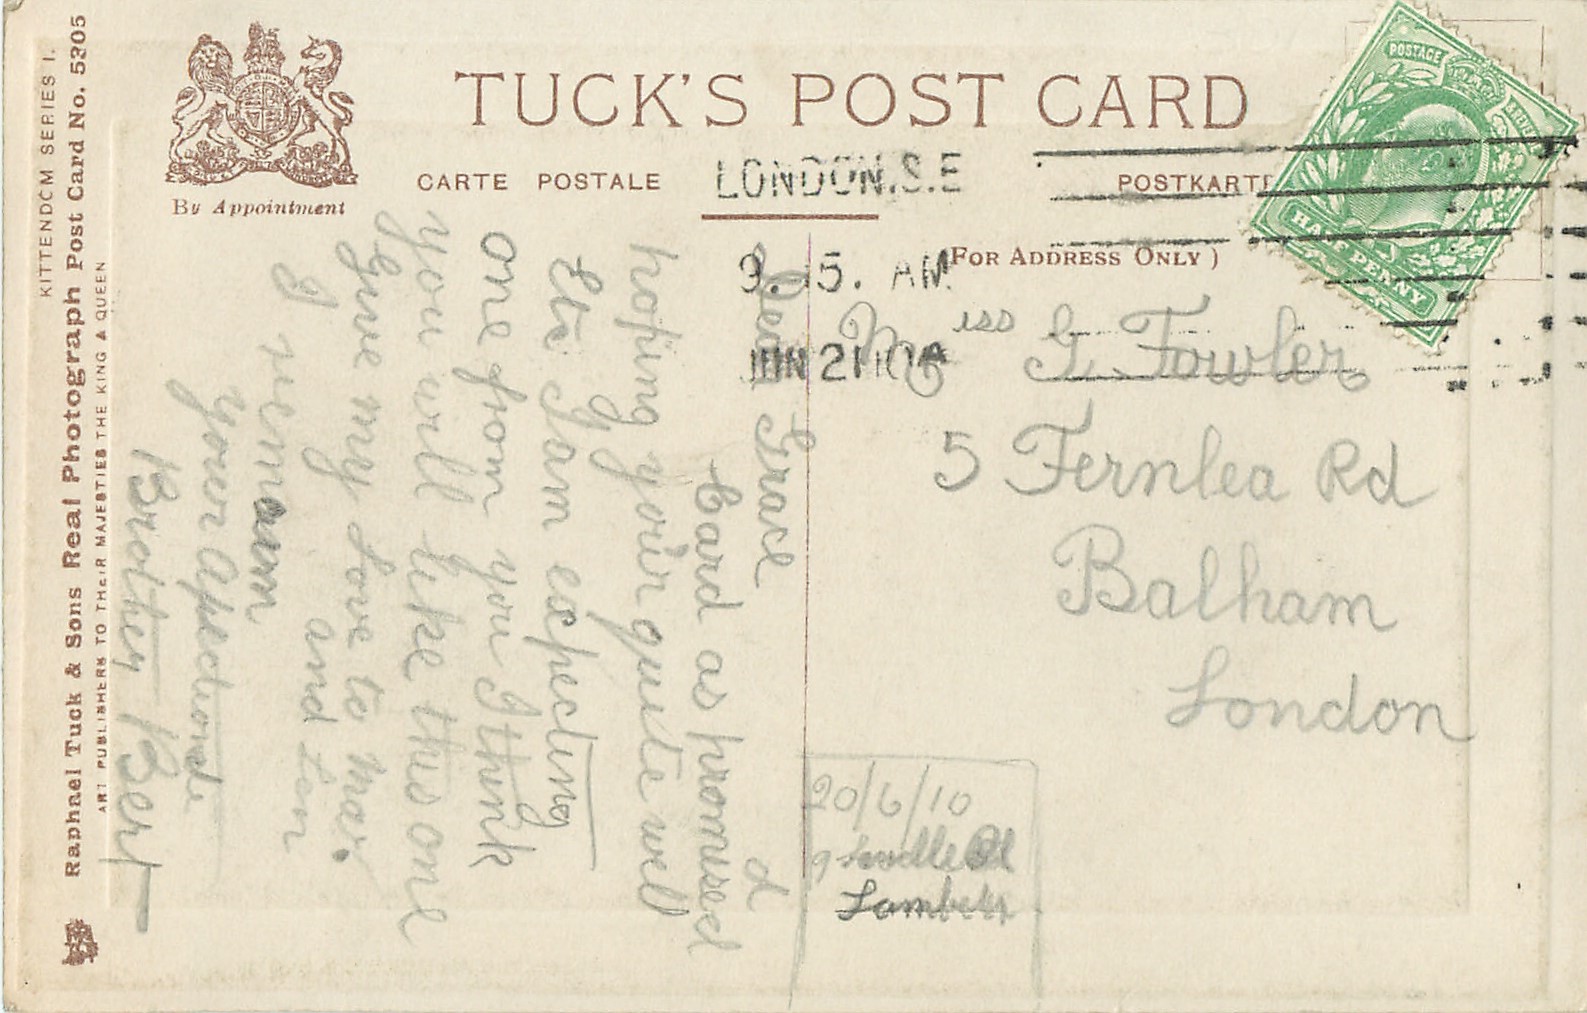 TUCK'S POST CARD
CARTE POSTALE
POSTKARTE
By Appointment
(FOR ADDRESS ONLY)
KITTENDOM SERIES I.
Raphael Tuck & Sons Real Photograph Post Card No. 5205
ART PUBLISHERS TO THEIR MAJESTIES THE KING & QUEEN
LONDON.S.E
9.15. AM
JUN 21 10
POSTAGE
HALF PENNY
Miss G. Fowler
5 Fernlea Rd
Balham
London
20/6/10
9 Rd
Lambeth
Dear Grace
Card as promised
hoping your quite well
Etc I am expecting
one from you I think
you will like this one
Give my love to Mar.
I and Len
remain
your Afectionate
Brother Bert